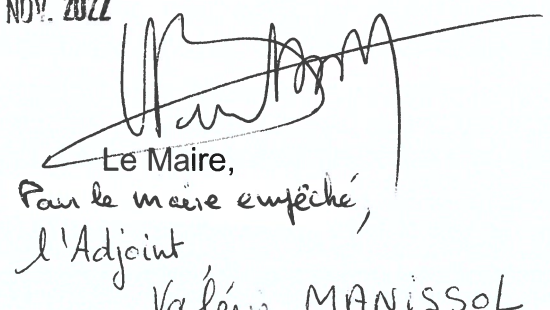 NOV. 2022
Le Maire,
Pour le maire empêché,
l'Adjoint
Valérie MANISSOL